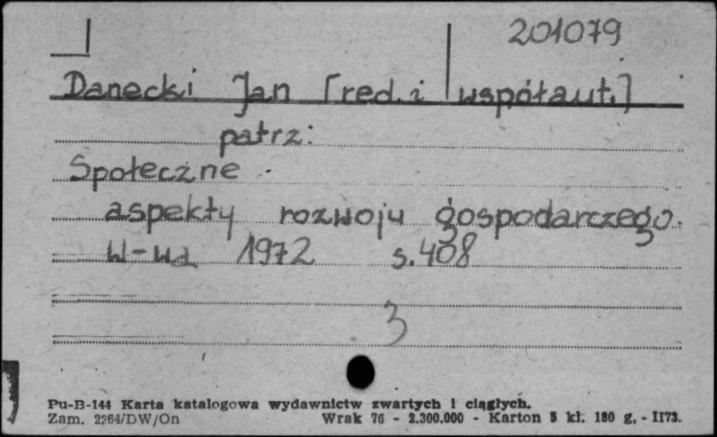 201079
Danecki Jan [red. i współaut.]
patrz:
Społeczne
aspekty rozwoju gospodarczego.
W-wa 1972 s. 408
3
Pu-B-144 Karta katalogowa wydawnictw zwartych i ciągłych.
Zam. 2264/DW/On Wrak 76 - 2.300.000 - Karton 5 kl. 180 g. - II73.